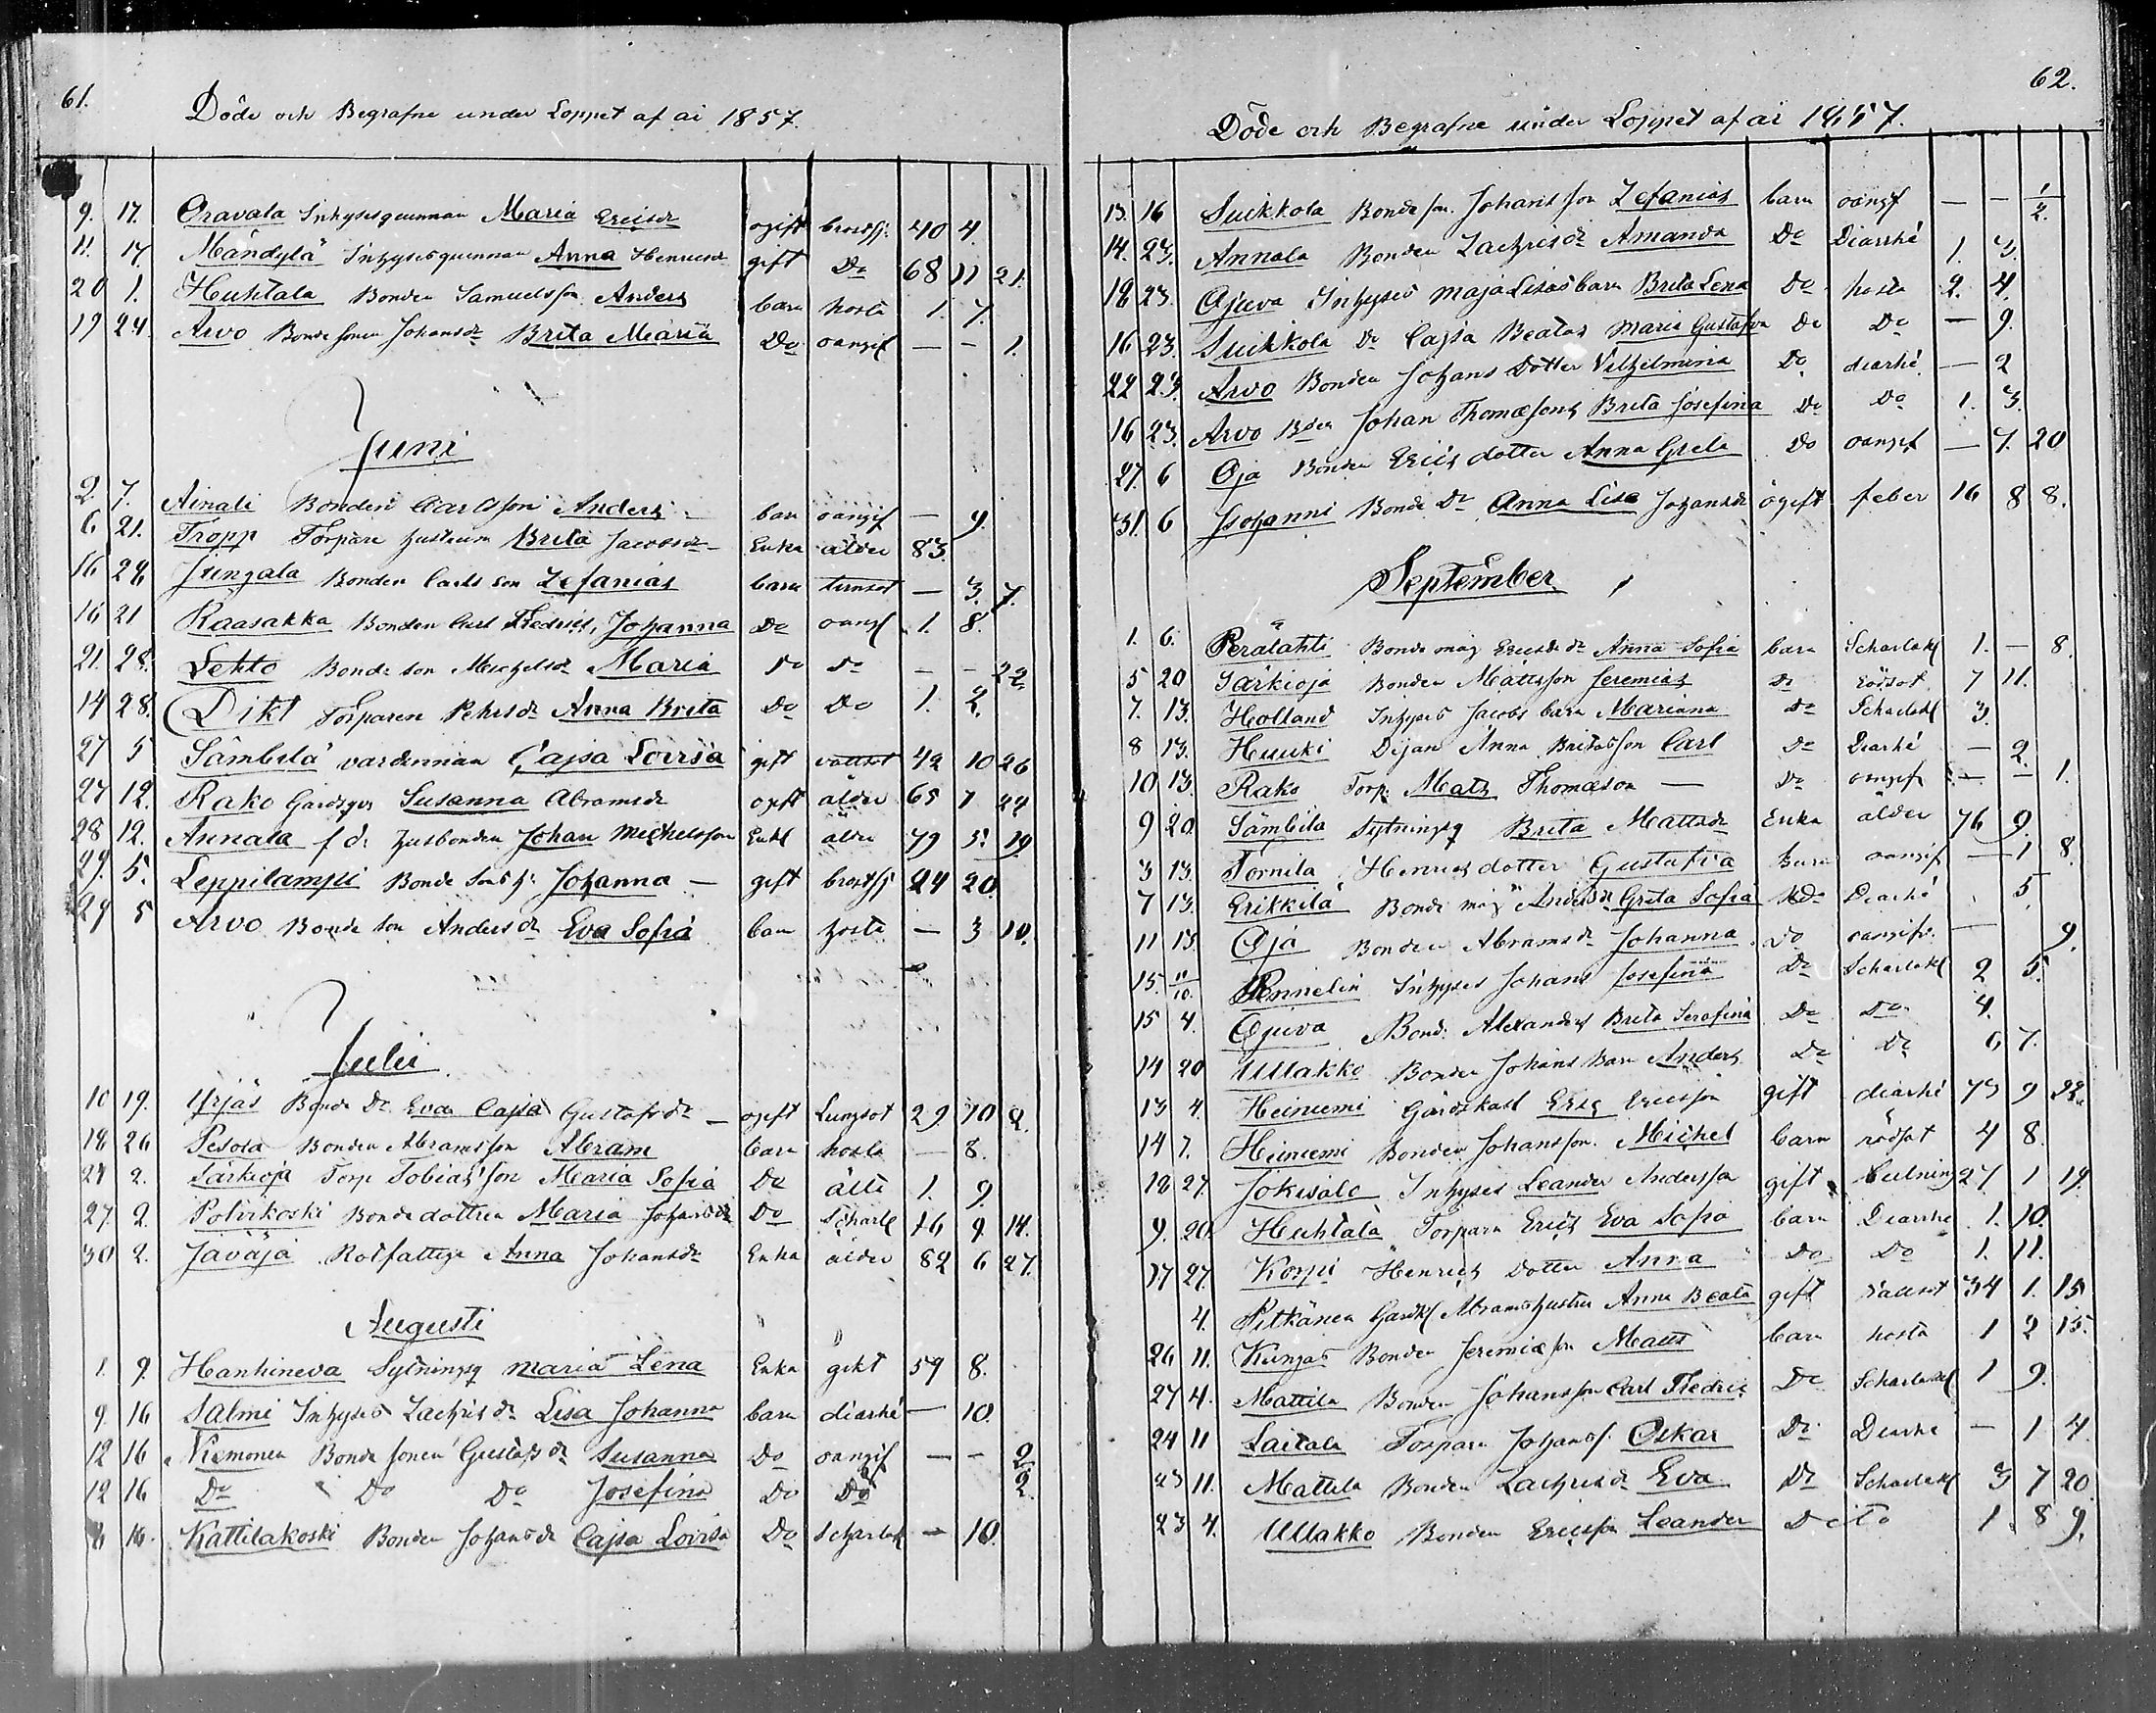 61.
Döde och Begrafne under Loppet af år 1857.
9. 17. Oravala Inhysesquinnan Maria Ericsdr ogift bröstsj: 40 4.
11. 17. Mändylä Inhysesquinnan Anna Henricsdr gift Do 68 11 21.
20 1. Huhtala Bonden Samuelsson Anders barn hosta 1. 7.
19 24. Arvo Bondesonen Johansdr Brita Maria Do oangif — — 1.
Juni
2. 7. Ainali Bonden Carlsson Anders barn oangif — 9.
6 21. Tropp Torpare hustrun Brita Jacobsdr Enka ålder 83.
16 28. Jungala Bonden Carls son Zefanias barn — 3. 7.
16 21 Raasakka Bonden Carl Fredrics, Johanna Do oangf 1. 8.
21. 28. Lehto Bonde son Michelsdr Maria Do Do — — 22.
14 28. Dikt Torparen Pehrsdr Anna Brita Do Do 1. 2.
27 5 Sämbilä Cajsa Lovisa gift vattsot 42 10 26
27 12. Rako Susanna Abramsdr ogift ålder 65 7 22
28 12. Annala f d. husbonden Johan Michelsson Enkl ålder 79 5. 19.
29. 5. Leppilampi Bonde Johanna — gift bröstsj 24 20.
29 5 Arvo Bonde son Andersdr Eva Sofia barn hosta — 3 10.
Julii
10 19. Yrjäs Bonde Dr Eva Cajsa Gustafsdr — ogift Lungsot 29. 10 2.
18 26 Pesola Bonden Abramsson Abram barn hosta — 8.
24 2. Särkioja Torp Tobias son Maria Sofia Do 1. 9.
27. 2. Polvikoski Bonde dottren Maria Johansdr Do Scharl 16 9. 14.
30 2. Jäväjä Rotfattige Anna Johansdr Enka ålder 82 6 27.
Augusti
1. 9. Hanhineva Sytningsq Maria Lena Enka gikt 59 8.
9. 16 Salmi Inhyses Zachrisdr Lisa Johanna barn diarhé — 10.
12 16 Niemonen Bonde sonen Gustafsdr Susanna Do oangif — — 2
12 16 Do Do Do Josefina Do Do 2.
8 16. Kattilakoski Bonden Johansdr Cajsa Lovisa Do Scharlak — 10.
62.
Döde och Begrafne under Loppet af år 1857.
13. 16 Suikkola Bondeson Johansson Zefanias barn oangf — — 1/2.
14. 23. Annala Bonden Zachrisdr Amanda Do Diarrhé 1. 3.
18 23. Ojuva Inhyses Maja Lisas barn Brita Lena Do hosta 2. 4.
16 23. Suikkola Do Cajsa Beatas Maria Gustafva Do Do — 9.
22 23. Arvo Bonden Johans Dotter Vilhelmina Do diarhé — 2
16 23. Arvo Bden Johan Thomæsons Brita Josefina Do Do 1. 3.
27. 6 Oja Bonden Erics dotter Anna Greta Do oangif — 7. 20
31. 6 Isohanni Bonde Dr Anna Lisa Johansdr ogift feber 16 8 8.
September
1. 6. Perälahti Bonde måg Ericsdr Anna Sofia barn Scharlakf 1. — 8.
5 20 Särkioja Bonden Mattsson Jeremias Do rödsot 7 11.
7. 13. Holland Inhyses Jacobs barn Mariana Do Scharlakf 3.
8 13. Huuki Anna Britas son Carl Do Diarhé — 2.
10 13. Rako Torp. Mats Thomæson — Do oangif — — 1.
9 20. Sämbilä Sytningsq Brita Mattsdr Enka ålder 76 9.
3 13. Tornila Henrics dotter Gustafva barn oangif — 1 8.
7 13. Erikkilä Bonde måg Andersdr Greta Sofia Do Diarhé 5
11 13. Oja Bonden Abramsdr Johanna Do oangifv. — 9.
15. 11/10. Pennelin Inhyses Johans Josefina Do Scharlakf 2 5.
15 4. Ojuva Bond. Alexanders Brita Serafina Do Do 4.
14 20 Ullakko Bonden Johans barn Anders Do Do 6 7.
13 4. Heiniemi Gårdskarl Eric Ericsson gift diarhé 73 9 22.
14 7. Heiniemi Bonden Johansson Michel barn rödsot 4 8.
18 27. Jokisalo Inhyses Leander Andersson gift 27 1 19.
9. 20. Huhtala Torparn Erics Eva Sofia barn Diarrhe 1. 10.
17 27. Korpi Henrics Dotter Anna Do Do 1. 11.
4. Pitkänen Gårdkl Abrams hustru Anna Beata gift 34 1. 15
26 11. Kungas Bonden Jeremiæson Matts barn hosta 1 2 15.
27 4. Mattila Bonden Johansson Carl Fredric Do Scharlakf 1 9.
24 11 Laitala Torparn Johans Oskar Do Diarhé — 1 4.
23 11. Mattila Bonden Zachrisdr Eva Do Scharlakf 3 7 20.
23 4. Ullakko Bonden Ericsson Leander Dito 1. 8 9.